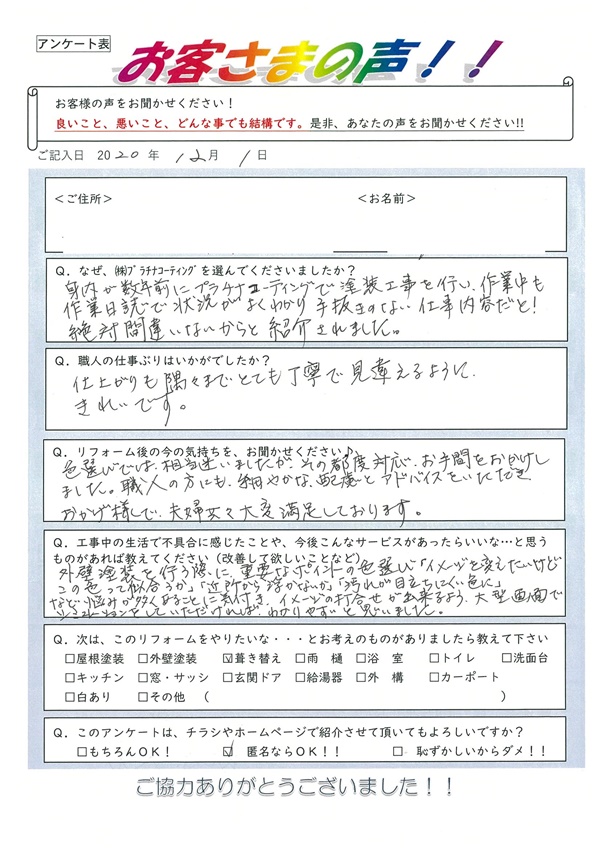 アンケート表
お客さまの声！！
お客様の声をお聞かせください！
良いこと、悪いこと、どんな事でも結構です。是非、あなたの声をお聞かせください!!
ご記入日 2020 年 12月 1日
＜ご住所＞ ＜お名前＞
Q．なぜ、㈱プラチナコーティングを選んでくださいましたか？
身内が数年前にプラチナコーティングで塗装工事を行い、作業中も
作業日誌で状況がよくわかり手抜きのない仕事内容だと！
絶対間違いないからと紹介されました。
Q．職人の仕事ぶりはいかがでしたか？
仕上がりも隅々までとても丁寧で見違えるように
きれいです。
Q．リフォーム後の今の気持ちを、お聞かせください♪
色選びでは、相当迷いましたが、その都度対応、お手間をおかけし
ました。職人の方にも、細やかな配慮とアドバイスをいただき
おかげ様で、夫婦共々大変満足しております。
Q．工事中の生活で不具合に感じたことや、今後こんなサービスがあったらいいな…と思う
ものがあれば教えてください（改善して欲しいことなど）
外壁塗装を行う際に、重要なポイントの色選び「イメージを変えたいけど
この色って似合うか」「近所から浮かないか」「汚れが目立ちにくい色に」
など、悩みが多くあることに気付き、イメージの打合せが出来るよう、大型画面で
シュミレーションをしていただければ、わかりやすいと思いました。
Q．次は、このリフォームをやりたいな・・・とお考えのものがありましたら教えて下さい
□屋根塗装 □外壁塗装 ☑葺き替え □雨 樋 □浴 室 □トイレ □洗面台
□キッチン □窓・サッシ □玄関ドア □給湯器 □外 構 □カーポート
□白あり □その他 （ ）
Q．このアンケートは、チラシやホームページで紹介させて頂いてもよろしいですか？
□もちろんOK！ ☑ 匿名ならOK！！ □ 恥ずかしいからダメ！！
ご協力ありがとうございました！！